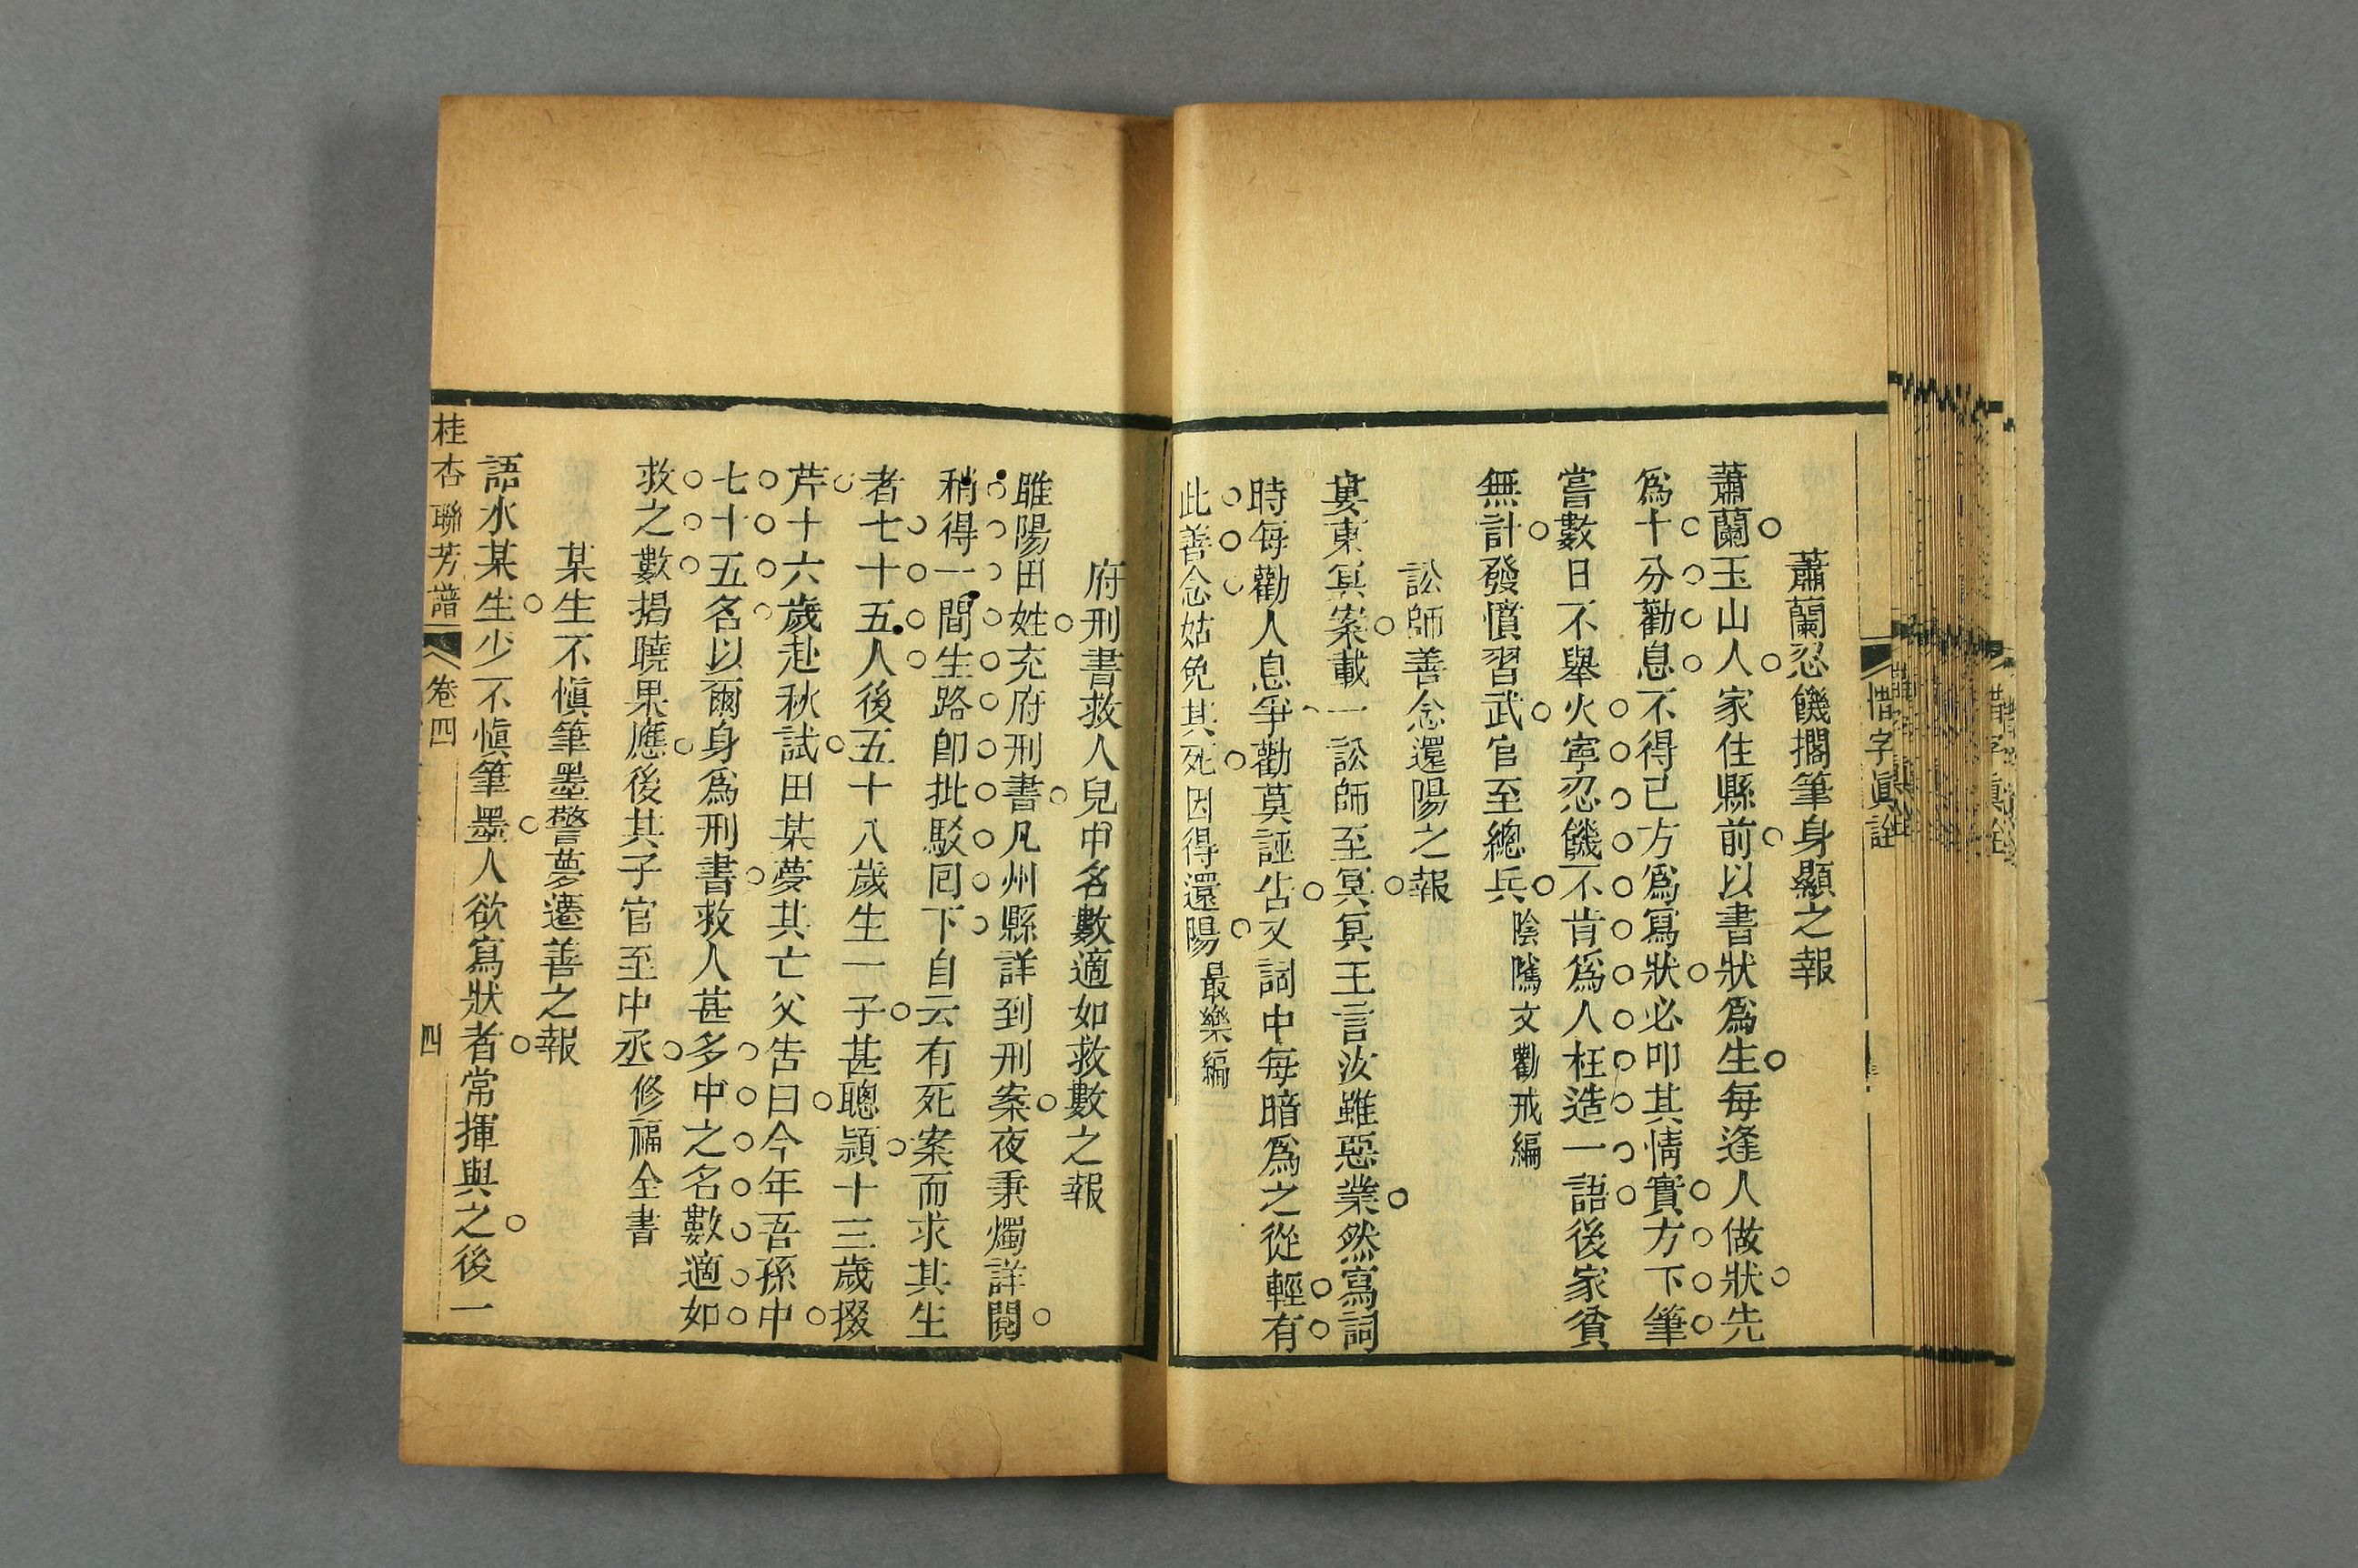 惜字眞詮
蕭蘭忍饑擱筆身顯之報
蕭蘭玉山人家住縣前以書狀爲生每逢人做狀先
爲十分勸息不得已方爲寫狀必叩其情實方下筆
嘗數日不舉火寧忍饑不肯爲人枉造一語後家貧
無計發憤習武官至總兵陰隲文勸戒編
訟師善念還陽之報
婁東冥案載一訟師至冥冥王言汝雖惡業然寫詞
時每勸人息爭勸莫誣告又詞中每暗爲之從輕有
此善念姑免其死因得還陽最樂編
府刑書救人兒中名數適如救數之報
睢陽田姓充府刑書凡州縣詳到刑案夜秉燭詳閱
稍得一間生路卽批駁囘下自云有死案而求其生
者七十五人後五十八歲生一子甚聰頴十三歲掇
芹十六歲赴秋試田某夢其亡父告曰今年吾孫中
七十五名以爾身爲刑書救人甚多中之名數適如
救之數揭曉果應後其子官至中丞修福全書
某生不愼筆墨警夢遷善之報
語水某生少不愼筆墨人欲寫狀者常揮與之後一
桂杏聯芳譜
卷四
四